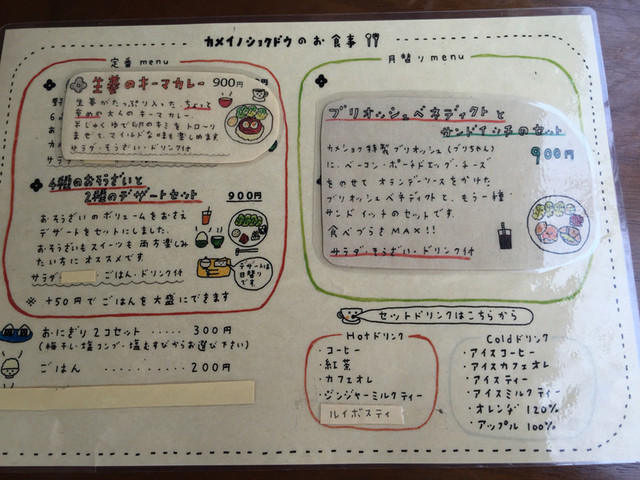 カメイノショクドウのお食事
定番 menu
生姜のキーマカレー 900円
生姜がたっぷり入った、ちょっと
辛めの大人のキーマカレー。
半じゅくゆで卵のキミをトローリ
まぜて、マイルドな味も楽しめます
サラダ・そうざい・ドリンク付
4種のおそうざいと
2種のデザートセット 900円
おそうざいのボリュームをおさえ
デザートをセットにしました。
おそうざいもスイーツも両方楽しみ
たい方にオススメです
サラダ ごはん・ドリンク付
デザートは
日替り
です
※ +50円でごはんを大盛にできます
おにぎり2コセット ・・・・・ 300円
(梅干し・塩コンブ・塩むすびからお選び下さい)
ごはん ・・・・・・・・・ 200円
月替り menu
ブリオッシュベネディクトと
サンドイッチのセット
900円
カメショク特製ブリオッシュ(ブリちゃん)
に、ベーコン・ポーチドエッグ・チーズ
をのせてオランデーソースをかけた
ブリオッシュベネディクトと、もう一種
サンドイッチのセットです。
食べづらさMAX!!
サラダ・そうざい・ドリンク付
セットドリンクはこちらから
Hotドリンク
・コーヒー
・紅茶
・カフェオレ
・ジンジャーミルクティー
ルイボスティ
Coldドリンク
・アイスコーヒー
・アイスカフェオレ
・アイスティー
・アイスミルクティー
・オレンヂ 120%
・アップル 100%